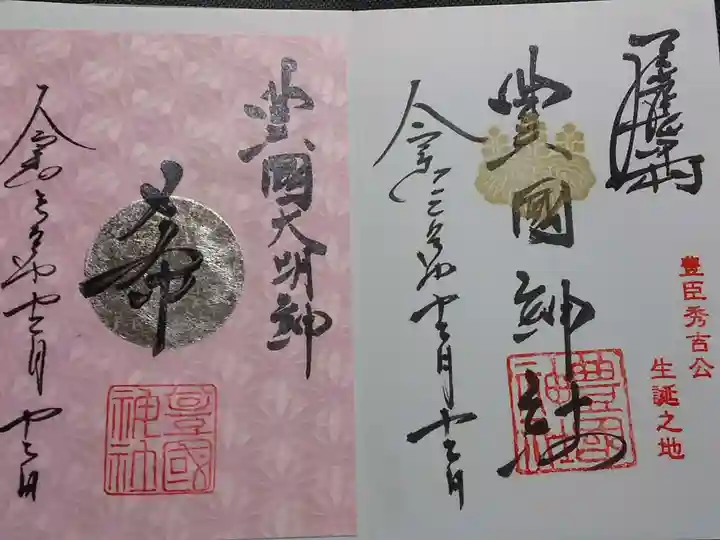 豊臣秀吉公
生誕之地
豊國神社
豊國神社
令和三年十二月十二日
豊國大明神
希
豊國神社
令和三年十二月十二日